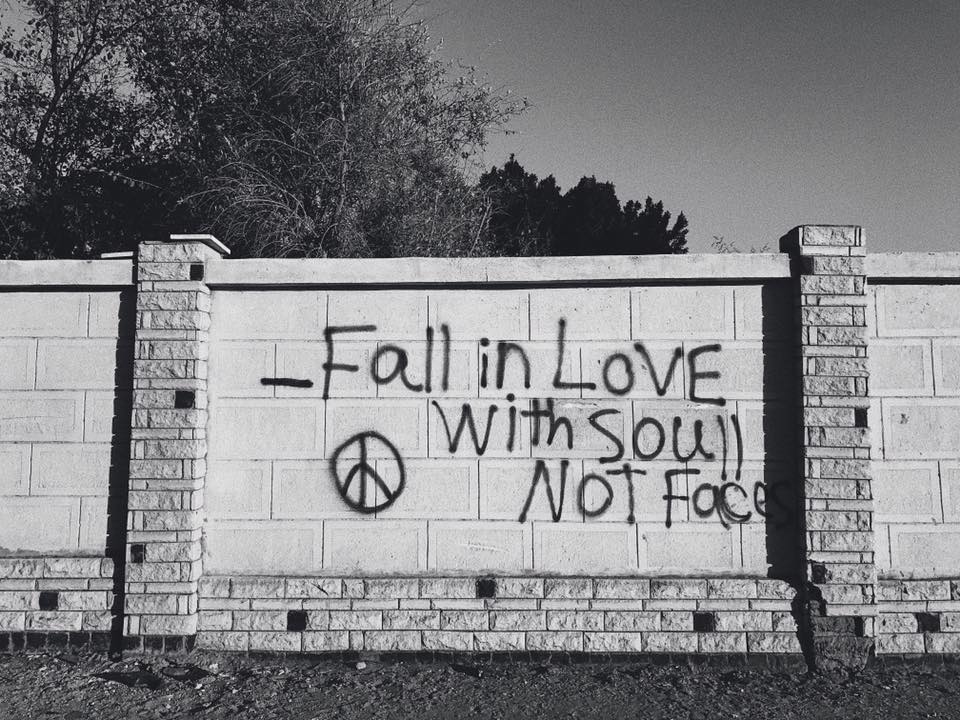 _Fall in LovE
With soull
NOT Faces